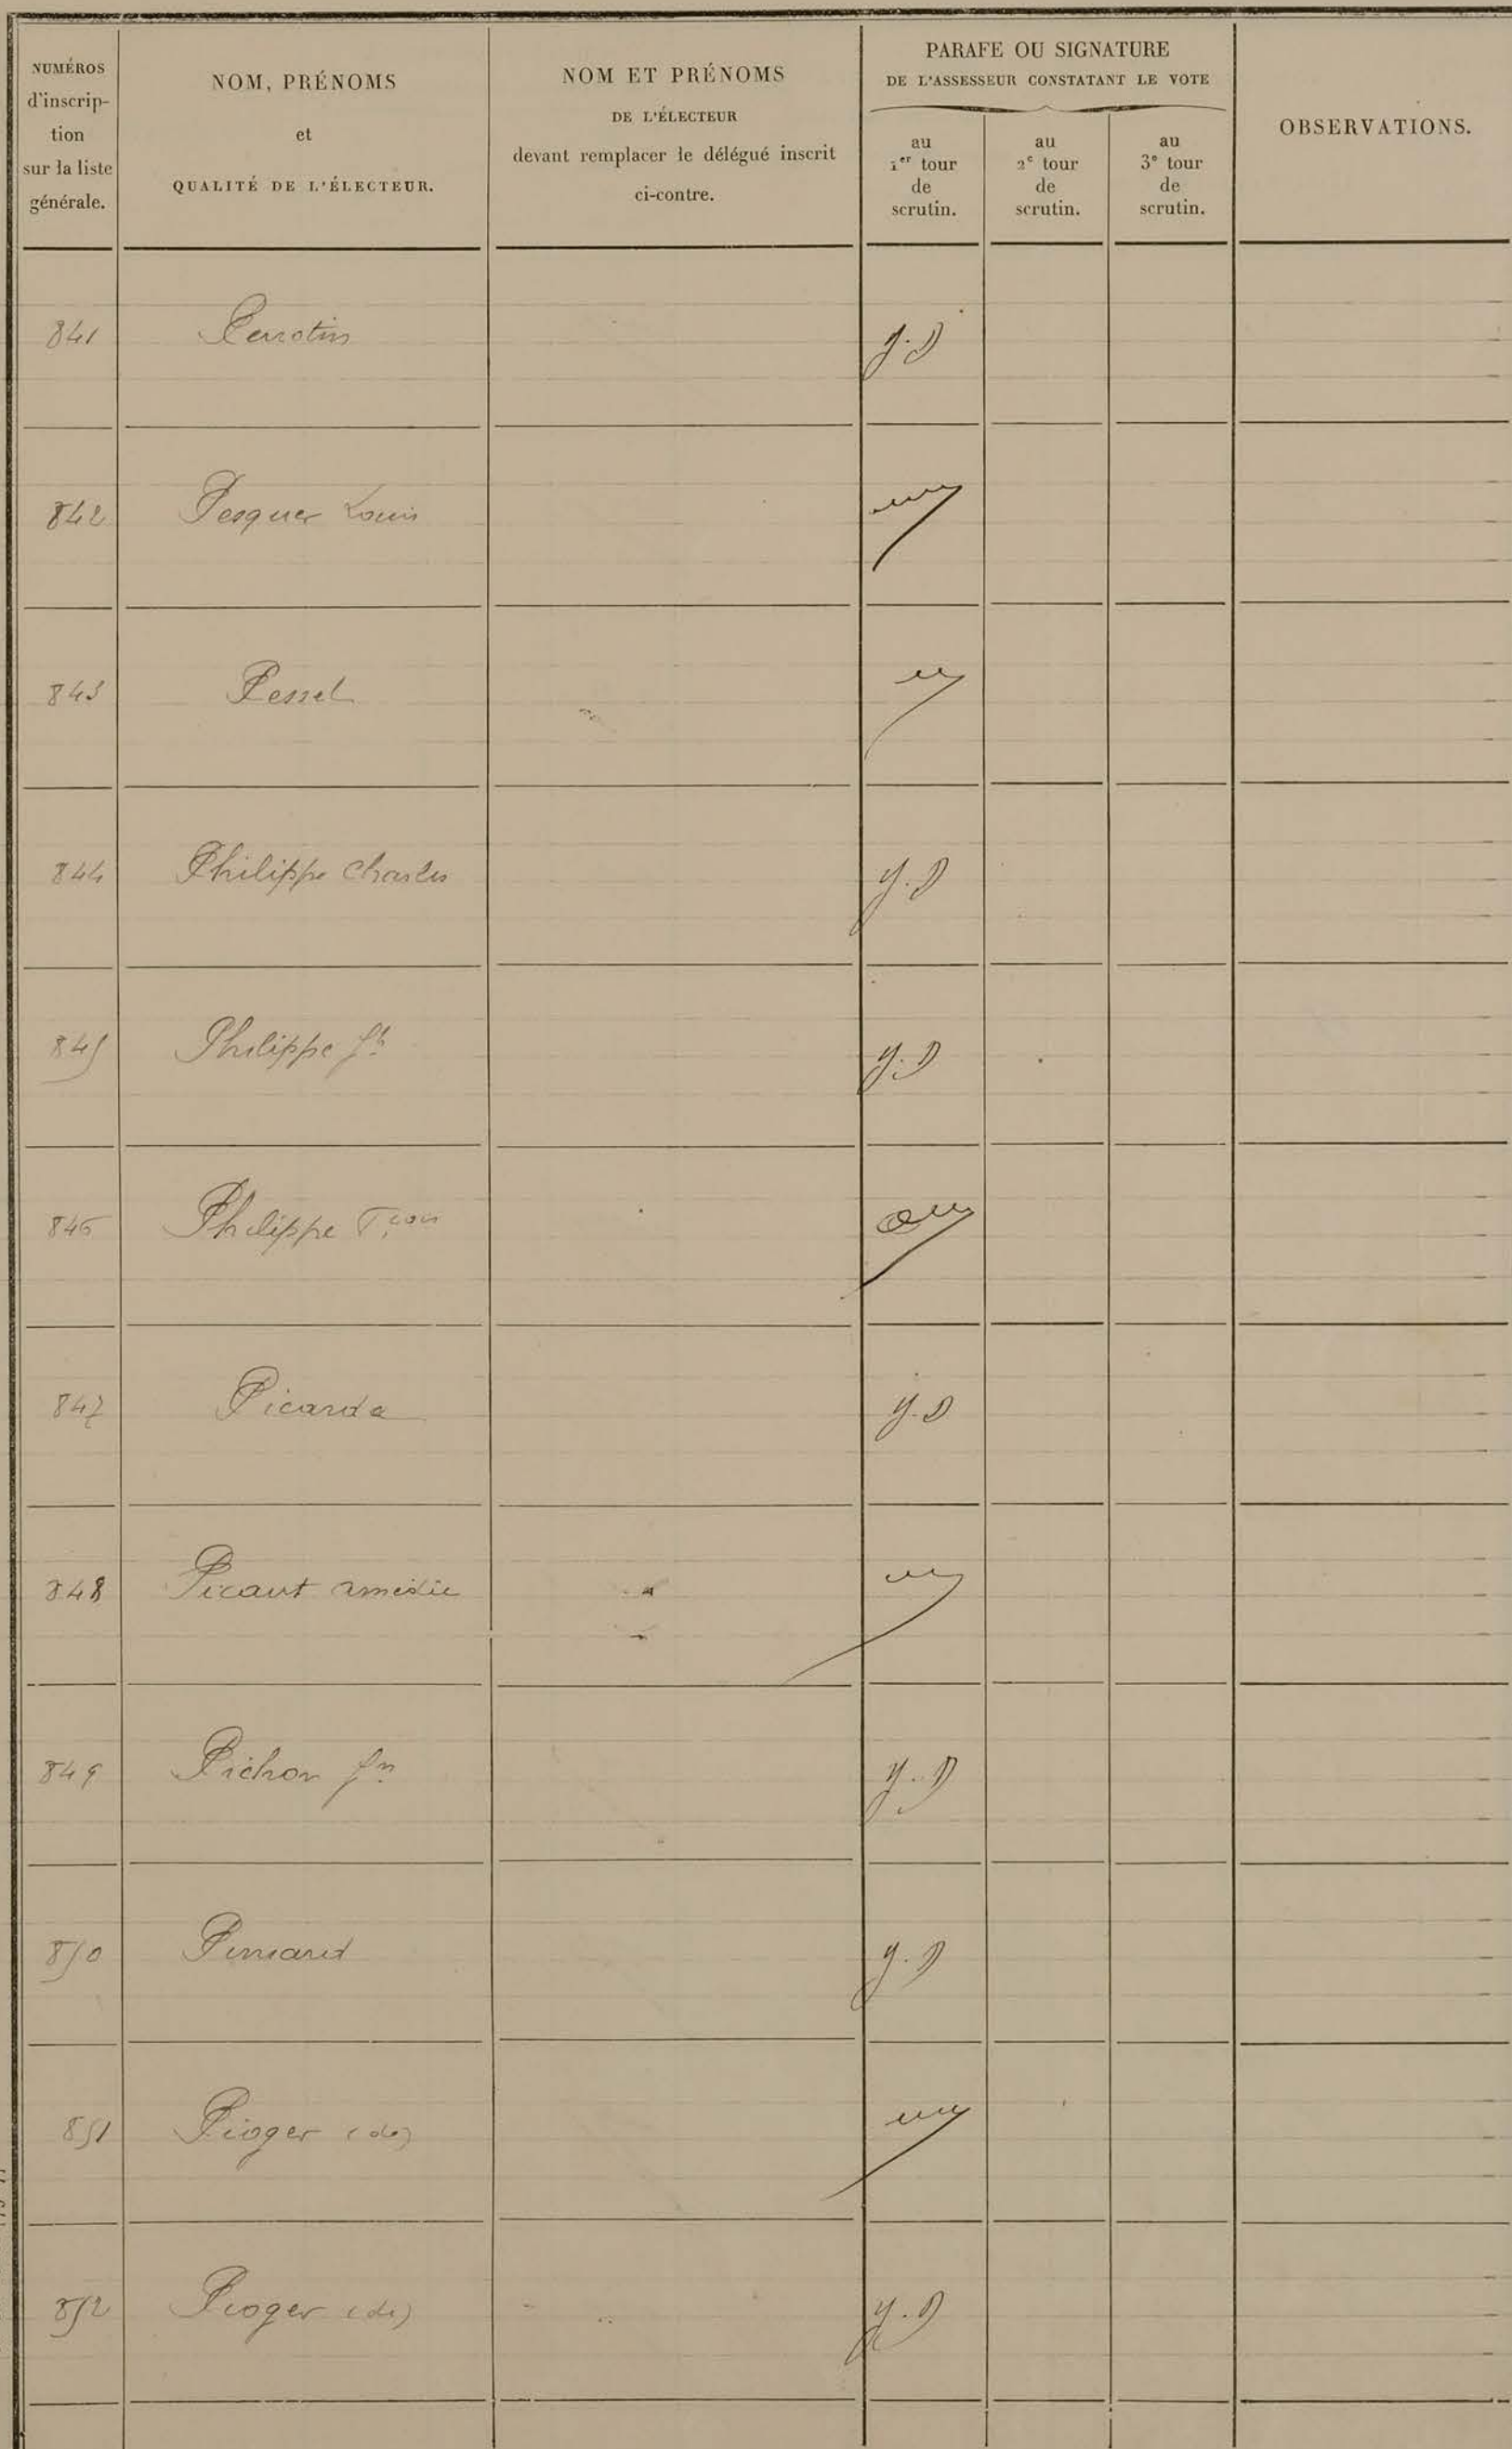 NUMÉROS
d'inscrip-
tion
sur la liste
générale.
NOM, PRÉNOMS
et
QUALITÉ DE L'ÉLECTEUR.
NOM ET PRÉNOMS
DE L'ÉLECTEUR
devant remplacer le délégué inscrit
ci-contre.
PARAFE OU SIGNATURE
DE L'ASSESSEUR CONSTATANT LE VOTE
au
1er tour
de
scrutin.
au
2e tour
de
scrutin.
au
3e tour
de
scrutin.
OBSERVATIONS.
841 Perrotin y.D
842 Pesquer Louis
843 Pessel
844 Philippe Charles y.D
845 Philippe Jh y.D
846 Philippe Fçois
847 Picarda y.D
848 Picaut amédée
849 Pichon Jn y.D
850 y.D
851 Pioger (de)
852 Pioger (de) y.D